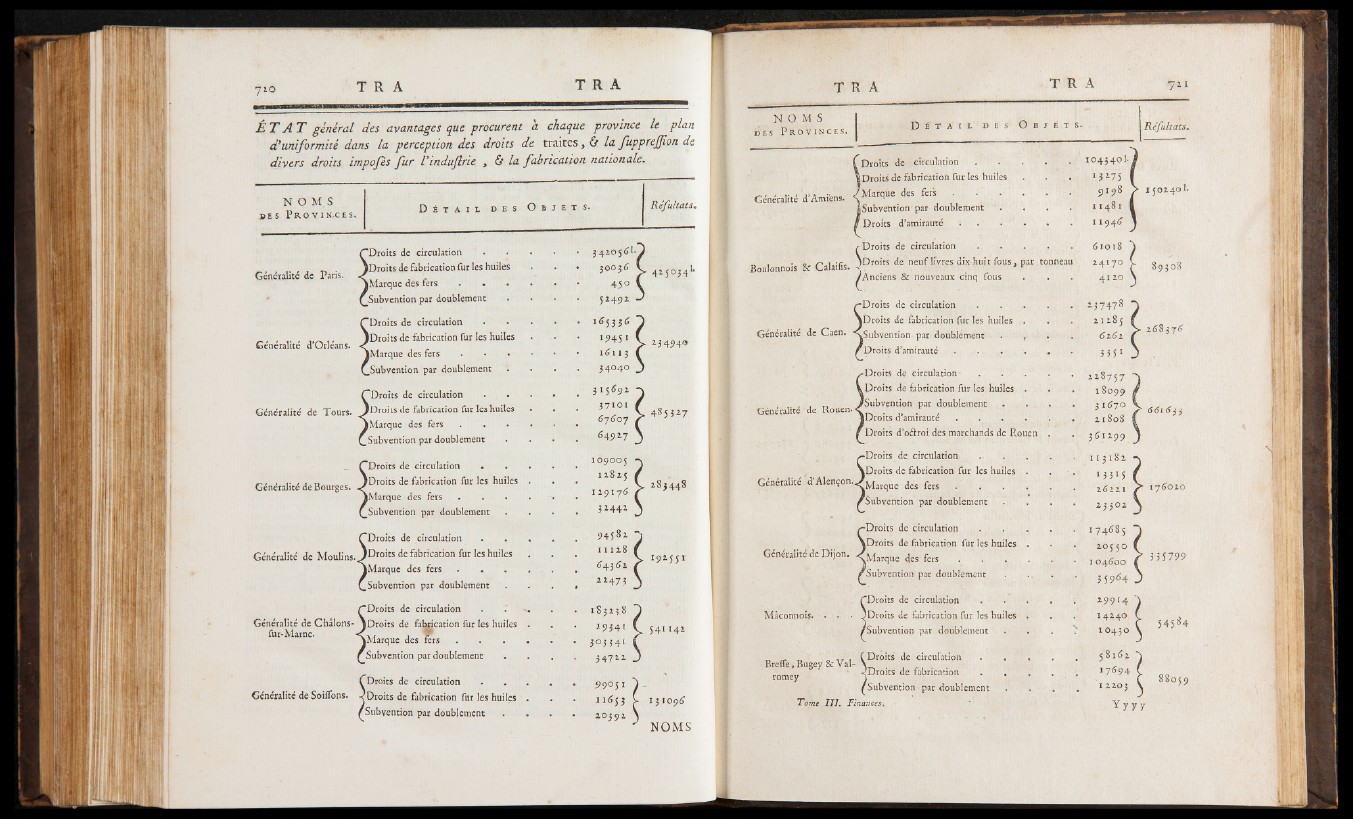 720 TRA TRA
ÉTAT général des avantages que procurent à chaque province le plan
d'uniformité dans la perception des droits de traites, & la suppreſſion de
divers droits impoſés ſur l'induſtrie , & la fabrication nationale.
NOMS DES PROVINCES. DÉTAIL DES OBJETS. Réſultats.
Droits de circulation . . . . . 342056l.
Généralité de Paris. Droits de fabrication ſur les huiles . . . 30036 425034l.
Marque des fers . . . . . . 450
Subvention par doublement . . . . 52492
Droits de circulation . . . . . 165336
Généralité d'Orléans. Droits de fabrication ſur les huiles . . . 19451 234940
Marque des fers . . . . . . 16113
Subvention par doublement . . . . 34040
Droits de circulation . . . . . 315692
Généralité de Tours. Droits de fabrication ſur les huiles . . . 37101 485327
Marque des fers . . . . . . 67607
Subvention par doublement . . . . 64927
Droits de circulation . . . . . 109005
Généralité de Bourges. Droits de fabrication ſur les huiles . . . 12825 283448
Marque des fers . . . . . . 129176
Subvention par doublement . . . . 32442
Droits de circulation . . . . . 94582
Généralité de Moulins. Droits de fabrication ſur les huiles . . . 11128 192551
Marque des fers . . . . . . 64362
Subvention par doublement . . . . 22473
Droits de circulation . . . . . 183238
Généralité de Châlons- Droits de fabrication ſur les huiles . . . 19341 541142
ſur-Marne. Marque des fers . . . . . . 303341
Subvention par doublement . . . . 34722
Droits de circulation . . . . . 99051
Généralité de Soiſſons. Droits de fabrication ſur les huiles . . . 11653 131096
Subvention par doublement . . . . 20392
NOMS
TRA TRA 721
NOMS DES PROVINCES. DÉTAIL DES OBJETS. Réſultats.
Droits de circulation . . . . . 104340l.
Droits de fabrication ſur les huiles . . . 13275
Généralité d'Amiens. Marque des fers . . . . . . 9198 150240l.
Subvention par doublement . . . . 11481
Droits d'amirauté . . . . . . 11946
Droits de circulation . . . . . 61018
Boulonnois & Calaiſis. Droits de neuf livres dix-huit ſous, par tonneau 24170 89308
Anciens & nouveaux cinq ſous . . . 4120
Droits de circulation . . . . . 237478
Droits de fabrication ſur les huiles . . . 21285
Généralité de Caen. Subvention par doublement . . . . 6262 268376
Droits d'amirauté . . . . . . 3351
Droits de circulation . . . . . 228757
Droits de fabrication ſur les huiles . . . 18099
Généralité de Rouen. Subvention par doublement . . . . 31670 661633
Droits d'amirauté . . . . . . 21808
Droits d'octroi des marchands de Rouen . . 361299
Droits de circulation . . . . . 113182
Droits de fabrication ſur les huiles . . . 13315
Généralité d'Alençon. Marque des fers . . . . . . 26221 176020
Subvention par doublement . . . . 23302
Droits de circulation . . . . . 174685
Droits de fabrication ſur les huiles . . . 20550
Généralité de Dijon. Marque des fers . . . . . . 104600 335799
Subvention par doublement . . . . 35964
Droits de circulation . . . . . 29914
Mâconnois. . . . Droits de fabrication ſur les huiles . . . 14240 54584
Subvention par doublement . . . . 10430
Breſſe, Bugey & Val- Droits de circulation . . . . . 58162
romey Droits de fabrication . . . . . 17694 88059
Subvention par doublement . . . . 12203
Tome III. Finances. Yyyy